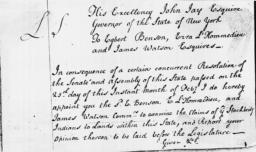 L S
His Excellency John Jay Esquire
Governor of the State of New York
To Egbert Benson, Ezra L'Hommedieu
and James Watson Esquires
In consequence of a certain concurrent Resolution of
the Senate and Assembly of this State passed on the
23.d day of this Instant month of I do hereby
appoint you the s.d E Benson E L'Hommedieu, and
James Watson Comm.rs to examine the Claims of Stockbridge
Indians to Lands within this State, and Report your
opinion thereon to be laid before the Legislature
Given &c.